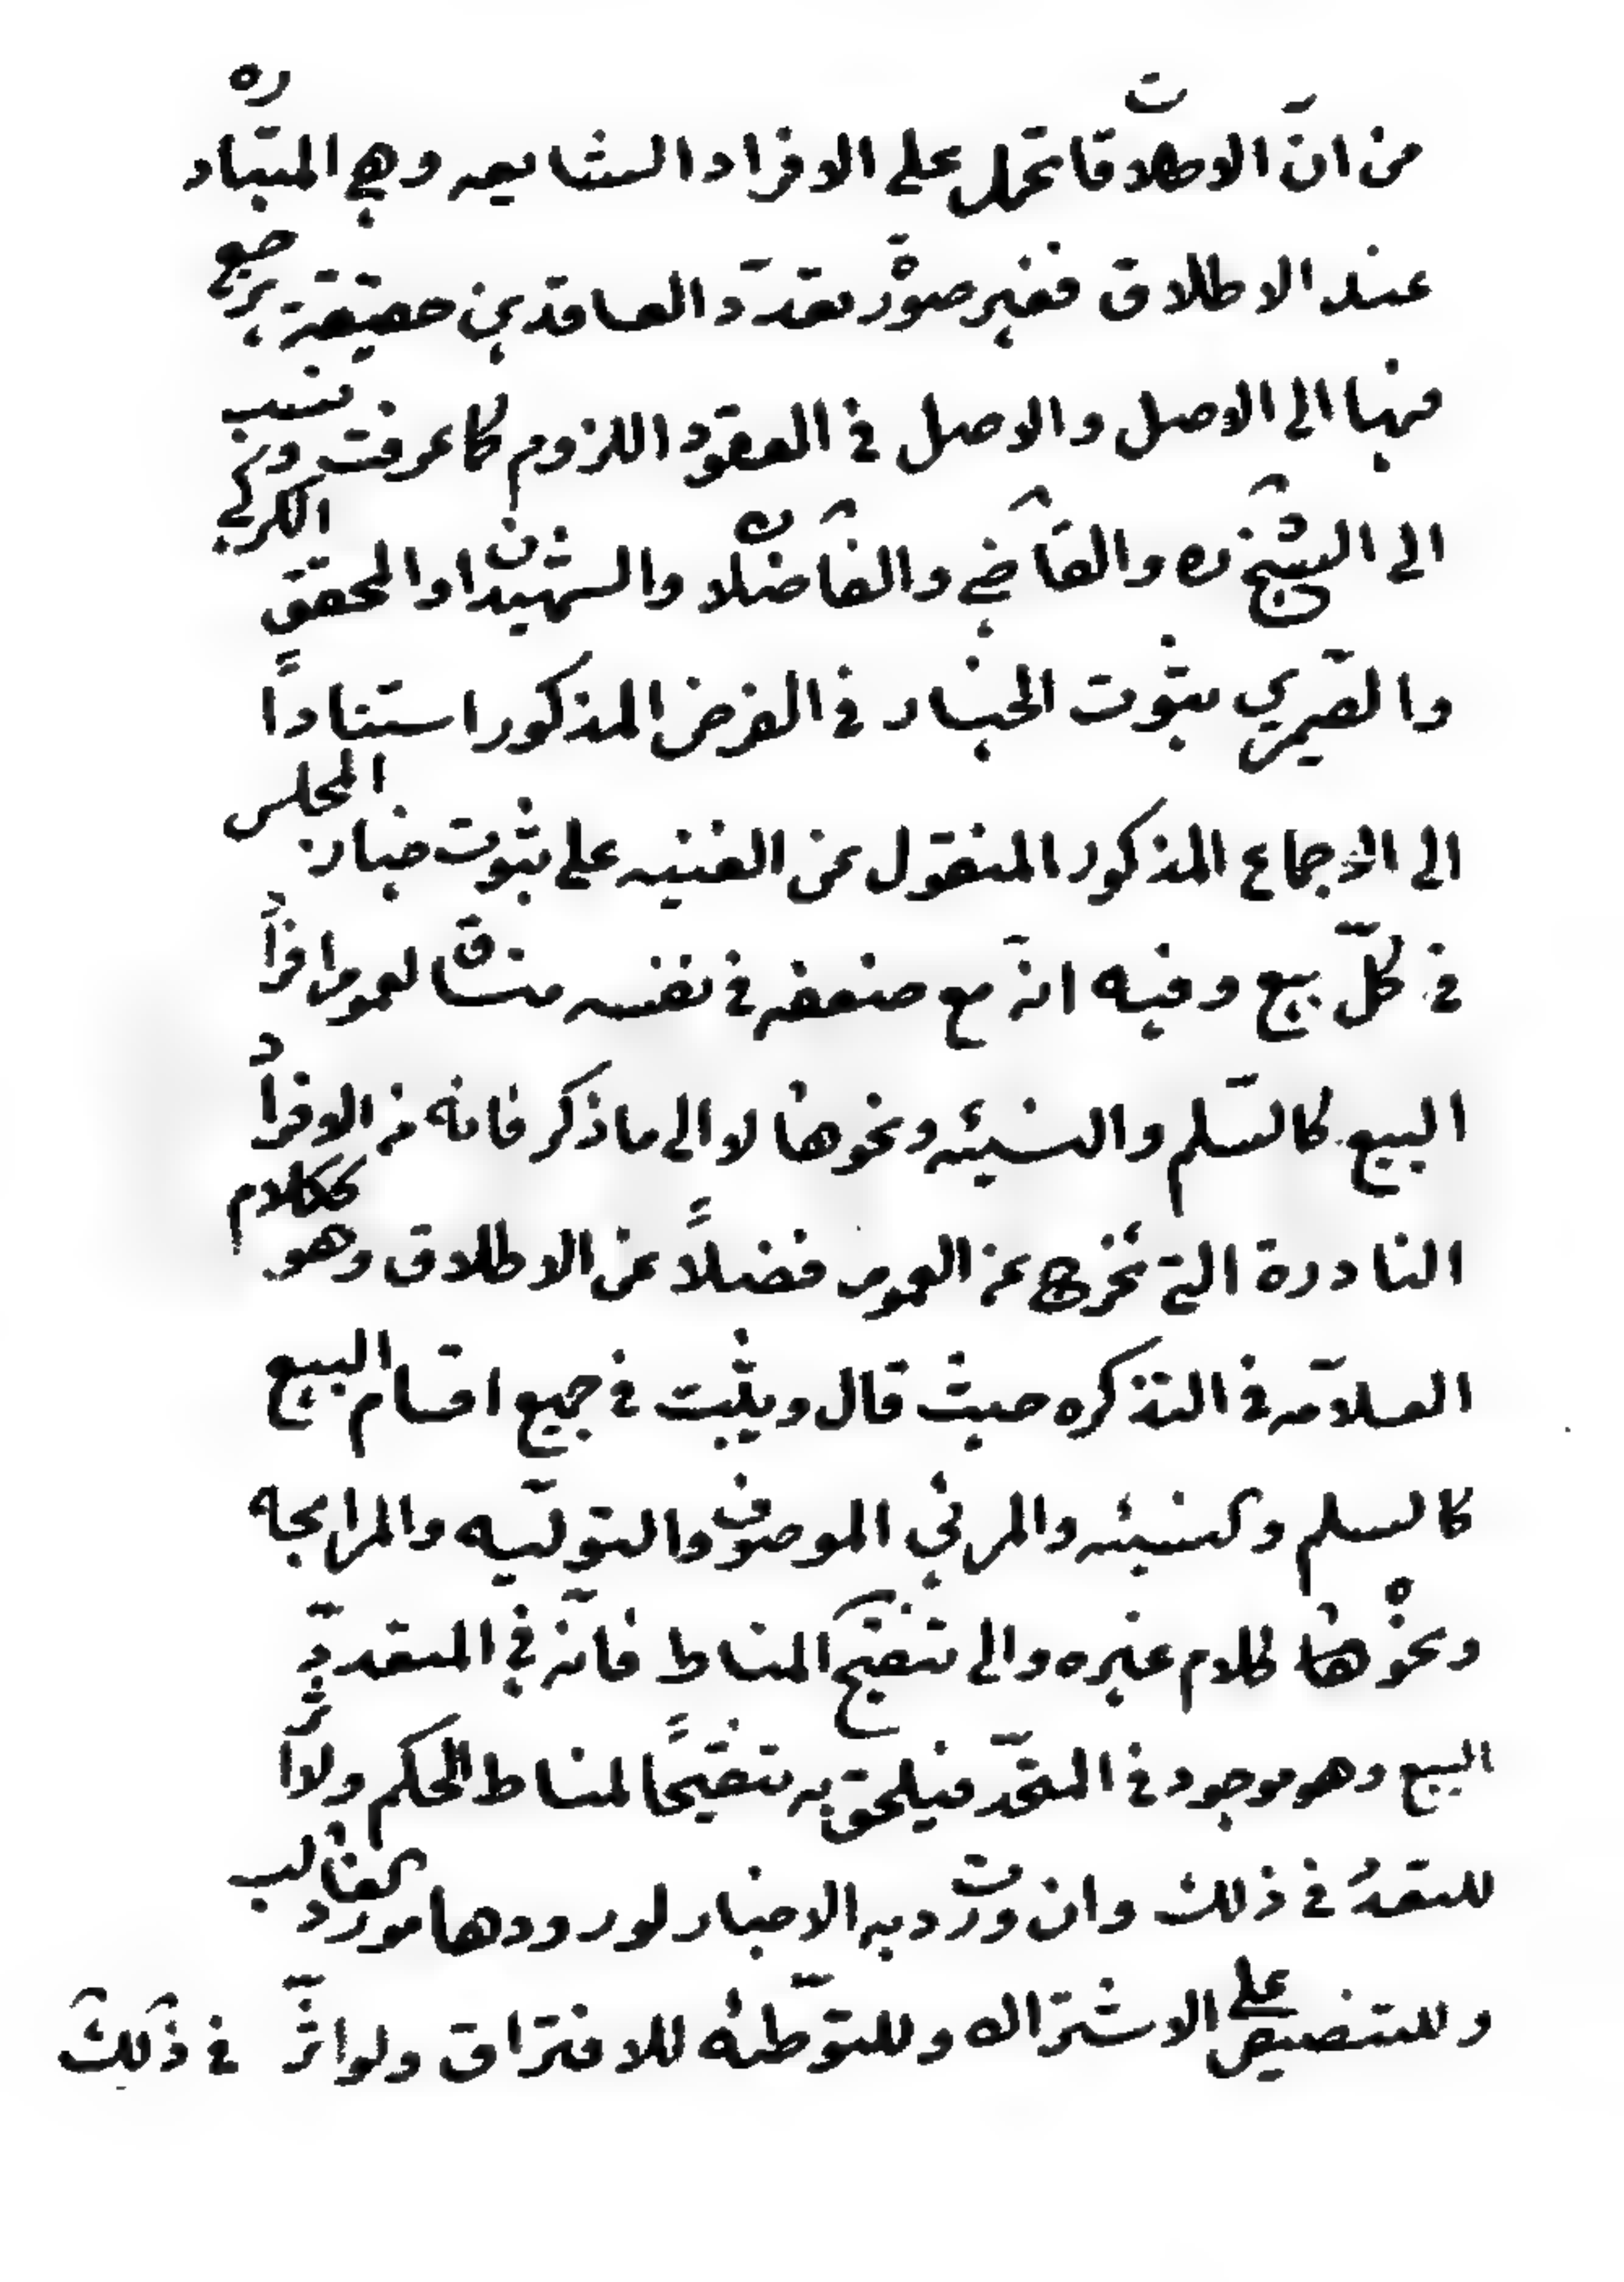 من انّ الاطلاقات تحمل على الافراد الشايعه وهي المتبادره
عند الاطلاق فغير صورة تعدّد العاقدين حقيقة يرجع
فيها الى الاصل والاصل في العقود اللزوم كما عرفت ونسب
الى الشيخ ره والقاضي والفاضلان والشهيدان والمحقق الكركي
والصيمري ثبوت الخيار في الفرض المذكور استناداً
الى الاجماع المذكور المنقول عن الغنيه على ثبوت خيار المجلس
في كلّ بيع وفيه انّه مع ضعفه في نفسه منساق لعموم افراد
البيع كالسّلم والنسيئه ونحوها لا الى ما ذكر فانه من الافراد
النادرة التي تخرج عن العموم فضلاً عن الاطلاق وهو ككلام
العلاّمه في التذكره حيث قال ويثبت في جميع اقسام البيع
كالسلم والنسيئه والمرئي الموصوف والتوليّه والمرابحه
ونحوها كلام غيره والى تنقيح المناط فانّه في المتعدد
البيع وهو موجود في المتّحد فيلحق به تنقيحًا لمناط الحكم ولا اثر
للتعدد في ذلك وان وردت به الاخبار لورودها مورد الغالب
وللتنصيص على الاشتراك وللتوّطئه للافتراق ولو اثّر في ذلك